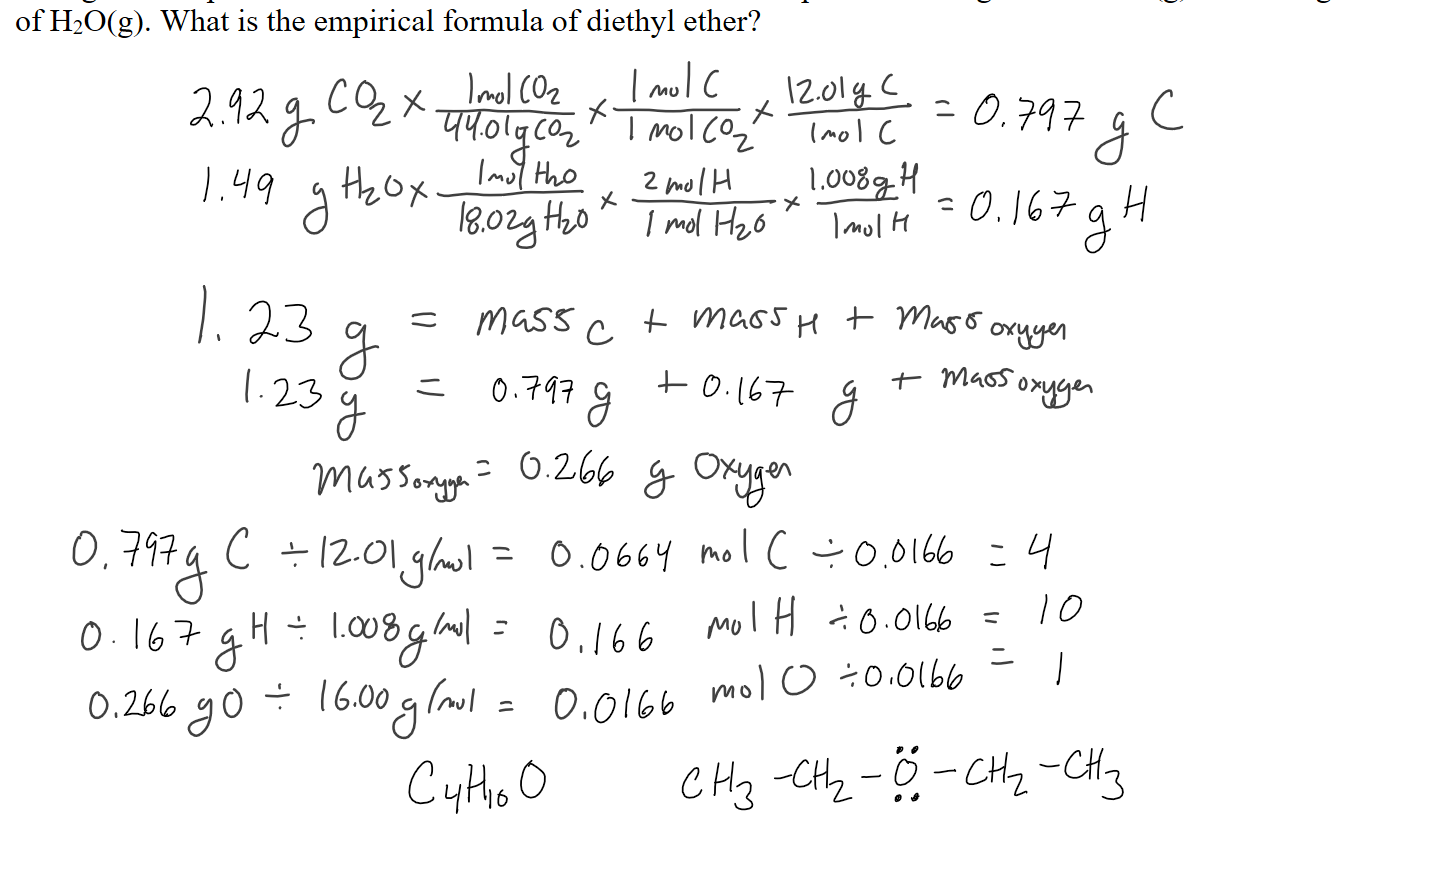 of H₂O(g). What is the empirical formula of diethyl ether?
2.92 g CO₂ × 1 mol CO₂ / 44.01 g CO₂ × 1 mol C / 1 mol CO₂ × 12.01 g C / 1 mol C = 0.797 g C
1.49 g H₂O × 1 mol H₂O / 18.02 g H₂O × 2 mol H / 1 mol H₂O × 1.008 g H / 1 mol H = 0.167 g H
1.23 g = mass C + mass H + mass oxygen
1.23 g = 0.797 g + 0.167 g + mass oxygen
mass oxygen = 0.266 g Oxygen
0.797 g C ÷ 12.01 g/mol = 0.0664 mol C ÷ 0.0166 = 4
0.167 g H ÷ 1.008 g/mol = 0.166 mol H ÷ 0.0166 = 10
0.266 g O ÷ 16.00 g/mol = 0.0166 mol O ÷ 0.0166 = 1
C₄H₁₀O CH₃-CH₂-Ö-CH₂-CH₃